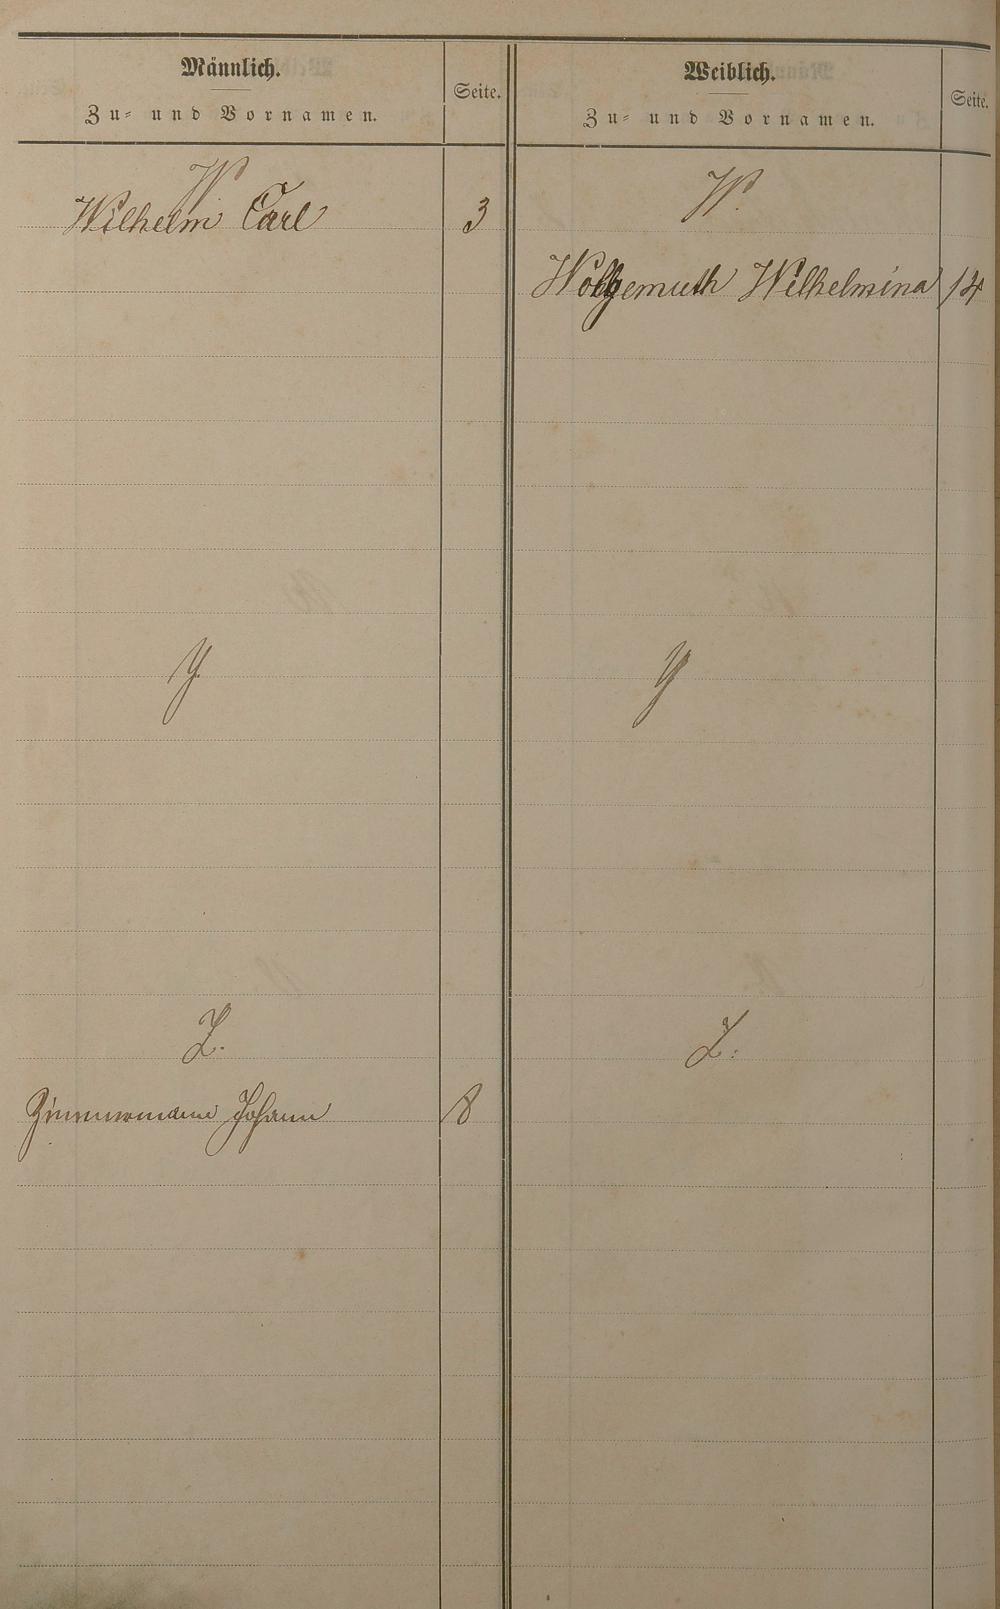 Männlich.
Zu- und Vornamen.
Seite.
W.
Wilhelm Carl 3
Y.
Z.
Zimmermann Johann 8
Weiblich.
Zu- und Vornamen.
Seite.
W.
Wolgemuth Wilhelmina 14
Y
Z.